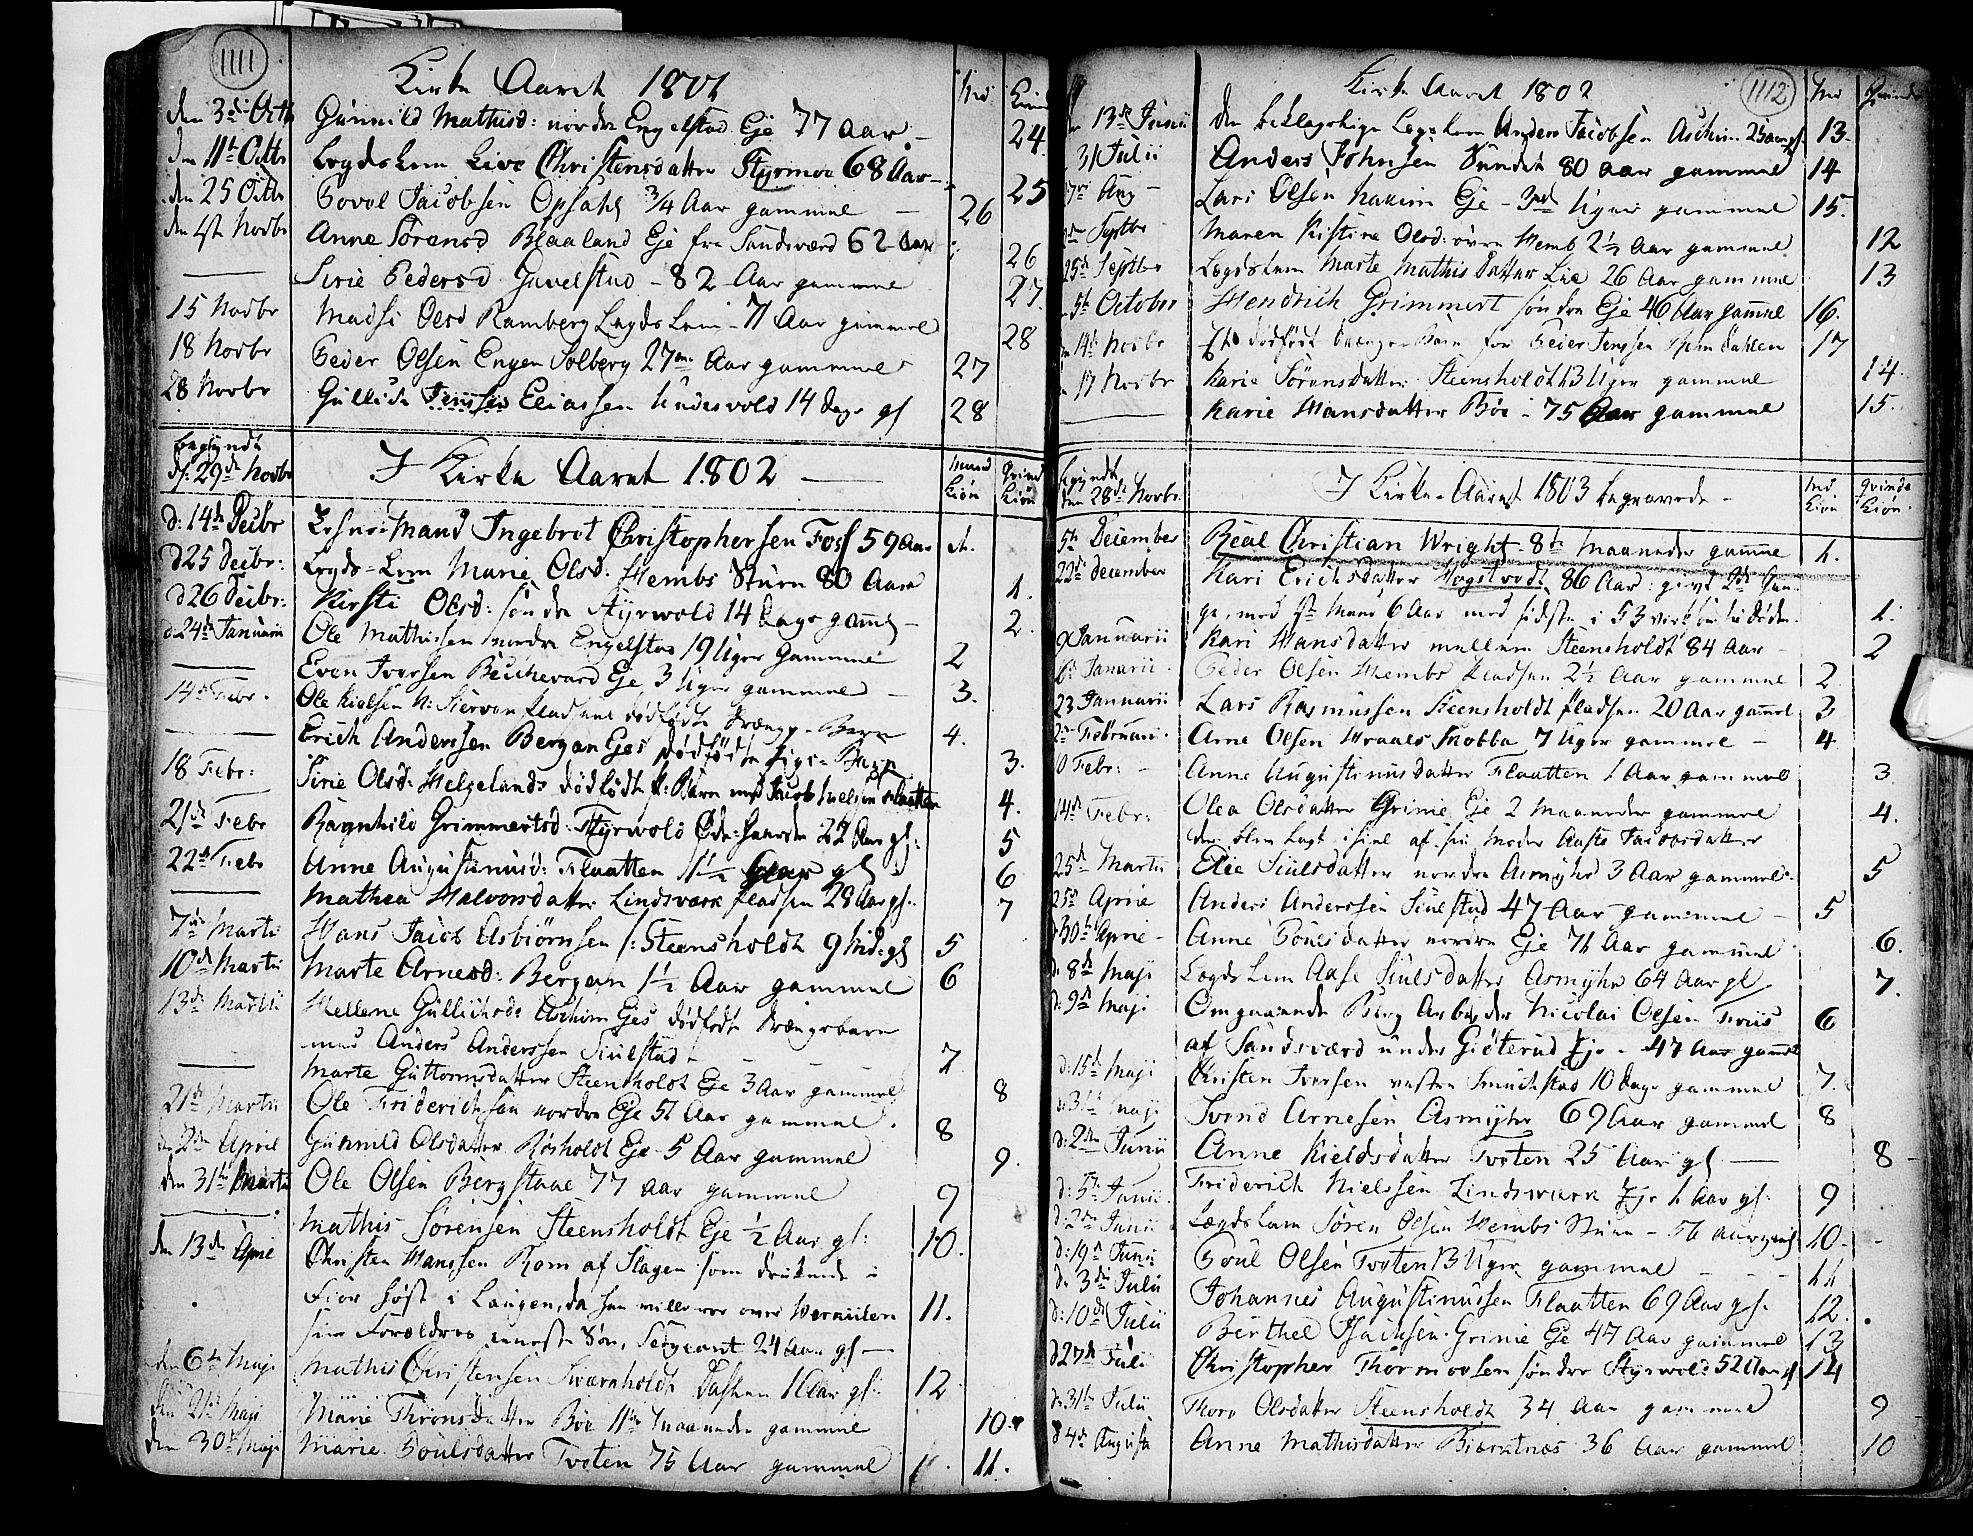 1111
Kirke Aaret 1801
Md
Qvind
den 3de Octb Gunnild Mathisd: nordre Engelstad Eje 77 Aar - 24.
den 11te Octbr Legds Lem Live Christensdatter Styrmoe 68 Aar - 25
den 25 Octbr Povel Jacobsen Opsahl 3/4 Aar gammel - 26
den 1ste Novbr Anne Sørensd Blaaland Eje fra Sandsværd 62 Aar 26
Sirie Pedersd Guvelstad - 82 Aar gammel 27.
15 Novbr Madsi Olsd Ramberg Legds Lem - 71 Aar gammel 28
18 Novbr Peder Olsen Engen Solberg 27 Aar gammel 27
28 Novbr Gullich Eliassen Undesvold 14 dage gl 28
begyndt
d: 29de Novbr I Kirke Aaret 1802 - Mand Kiøn Qvind Kiøn
d: 14de Decbr Mand Ingebret Christophersen Foss 59 Aar 1.
d 25 Decbr: Legds-Lem Marie Olsd. Hembs Stuen 80 Aar 1.
d 26 Decbr: Kirsti Olsd: søndre Styrvold 14 Dage gaml - 2.
d. 24de Januarii Ole Mathissen nordre Engelstad 19 Uger Gammel 2
Even Iversen Eje 3 Uger gammel - 3.
14de Febr. Ole Kielsen N: Pladsens dødfødte Drænge-Barn 4.
Erich Anderssen Bergan Ejes dødfødte Pige-Barn 3.
18 Febr: Sirie Olsd. Helgelands dødfødte P: Barn med Jacob Nielsen Flaatten 4.
21de Febr Ragnhild Grimmertsd: Styrvold Øde-Gaarden 22 Aar gl: 5
22de Febr Anne Augustinusd: Flaatten 11 1/2 Aar gl 6
Mathea Halvorsdatter Lindsværk Pladsen 28 Aar gl: 7
7de Martii Hans Jacob Asbiørnsen /: Steensholdt 9 Md: gl 5
10de Martii Marte Arnesd: Bergan 1 1/2 Aar gammel 6
13de Martii Hellene Gullichsds Aschim Ejes dødfødte Drængebarn
med Anders Anderssen Siulstad - 7
Marte Guttormsdatter Steensholdt Eje 3 Aar gammel 8
21de Martii Ole Friderichsen nordre Eje 51 Aar gammel. 8
den 2den April Gunnild Olsdatter Røsholdt Eje 5 Aar gammel 9.
den 31te Martii Ole Olsen Bergstaae 77 Aar gammel 9
Mathis Sørensen Steensholdt Eje 1/2 Aar gl: 10.
den 13de April Christen Hanssen Rom af Slagen som druknede i
Fior Høst i Laugen, da han ville roe over
sine Forældres eneste Søn, Sergeant 24 Aar gl - 11.
den 6te Maji Mathis Christensen Sværnholdt 1 Aar gl: 12
den 21de Maji Marie Thronsdatter Bøe 11 Maaneder gammel 10.
den 30te Maji Marie Poulsdatter Tvøten 75 Aar gammel 11.
1112
Kirke Aaret 1802
Md
Qvinde
13de Junii den beklagelige Legs Lem Anders Jacobsen Aschim 25 aar gl. 13.
31 Julii Anders Johnsen Sundet 80 aar gammel 14
Aug - Lars Olsen Eje - 3de Uger gammel 15.
Septbr Maren Kistine Olsd: øvre Hemb 2 1/2 Aar gammel 12
25de Septbr Legdslem Marte Mathisdatter Lie 26 Aar gammel 13
5te October Hendrich Grimmert søndre Eje 46 Aar gammel 16.
14de Novbr Et dødfødt Drænge-Barn for Peder Jenssen Dahlen 17
17 Novbr Karie Sørensdatter Steensholdt 13 Uger gammel 14.
Karie Hansdatter Bøe - 75 Aar gammel 15.
begyndt
den 28de Novbr. I Kirke-Aaret 1803 begravede - Md Kiøn qvinde Kiøn.
5te December Real Christian Wright - 8te Maaneder gamme 1.
22de december Kari Erichsdatter Høgstvedt 86 Aar: givt 2de Gan-
ge, med 1ste Mand 6 Aar med sidste i 53 1.
9 Januarii Kari Hansdatter mellem Steensholdt 84 Aar - 2
6te Januarii. Peder Olsen Hembs Pladsen 2 1/2 Aar gammel 2
23 Januarii Lars Rasmussen Steensholdt Pladsen 20 Aar gammel 3
2den Februari. Arne Olsen Snobba 7 Uger gammel - 4
Febr: - Anne Augustinusdatter Flaatten 1 Aar gammel 3
14de Febr: Olea Olsdatter Grinie Eje 2 Maaneder gammel 4.
den blev lagt ihiel af sin Moder Aaste Jacobsdatter
25de Martii Elie Siulsdatter nordre Asmyhr 3 Aar gammel. 5
25de Aprile Anders Anderssen Siulstad 47 Aar gammel - 5
d: 30te Aprile - Anne Poulsdatter nordre Eje 71 Aar gammel 6.
d. 8de Maji Legds Lem Aase Siulsdatter Asmyhr 64 Aar gl 7.
d: 9de Maji Omgaaende Berg Arbejder Nicolai Olsen Friis
af Sandsværd under Giøterud Eje - 47 Aar gammel 6
d: 15de Maji Kristen Iversen vestre Smuchstad 10 Dage gammel 7.
d: 31te Maji Trond Arnesen Asmyhr 69 Aar gammel 8
d: 2den Junii Anne Kieldsdatter Tvøten 25 Aar gl - 8 -
d: 5te Junii. Friderich Nielssen Lindsværk Eje 1 Aar gl: 9
d: 2den Junii Legdslem Søren Olsen Hembs Stuen - 56 Aar gaml 10.
d: 19de Junii Poul Olsen Tvøten 13 Uger gammel - 11
d: 3de Julii Johannes Augustinussen Flaatten 69 Aar gl. 12.
d: 10de Julii Berthel Isachsen Grinie Eje 47 Aar gammel 13
d 27de Julii Christopher Thormodsen søndre Styrvold 52 Aar gl 14
d: 31te Julii Thore Olsdatter Steensholdt 34 Aar gammel 9
d 4de Augusti Anne Mathisdatter Biørntnes 36 Aar gammel 10